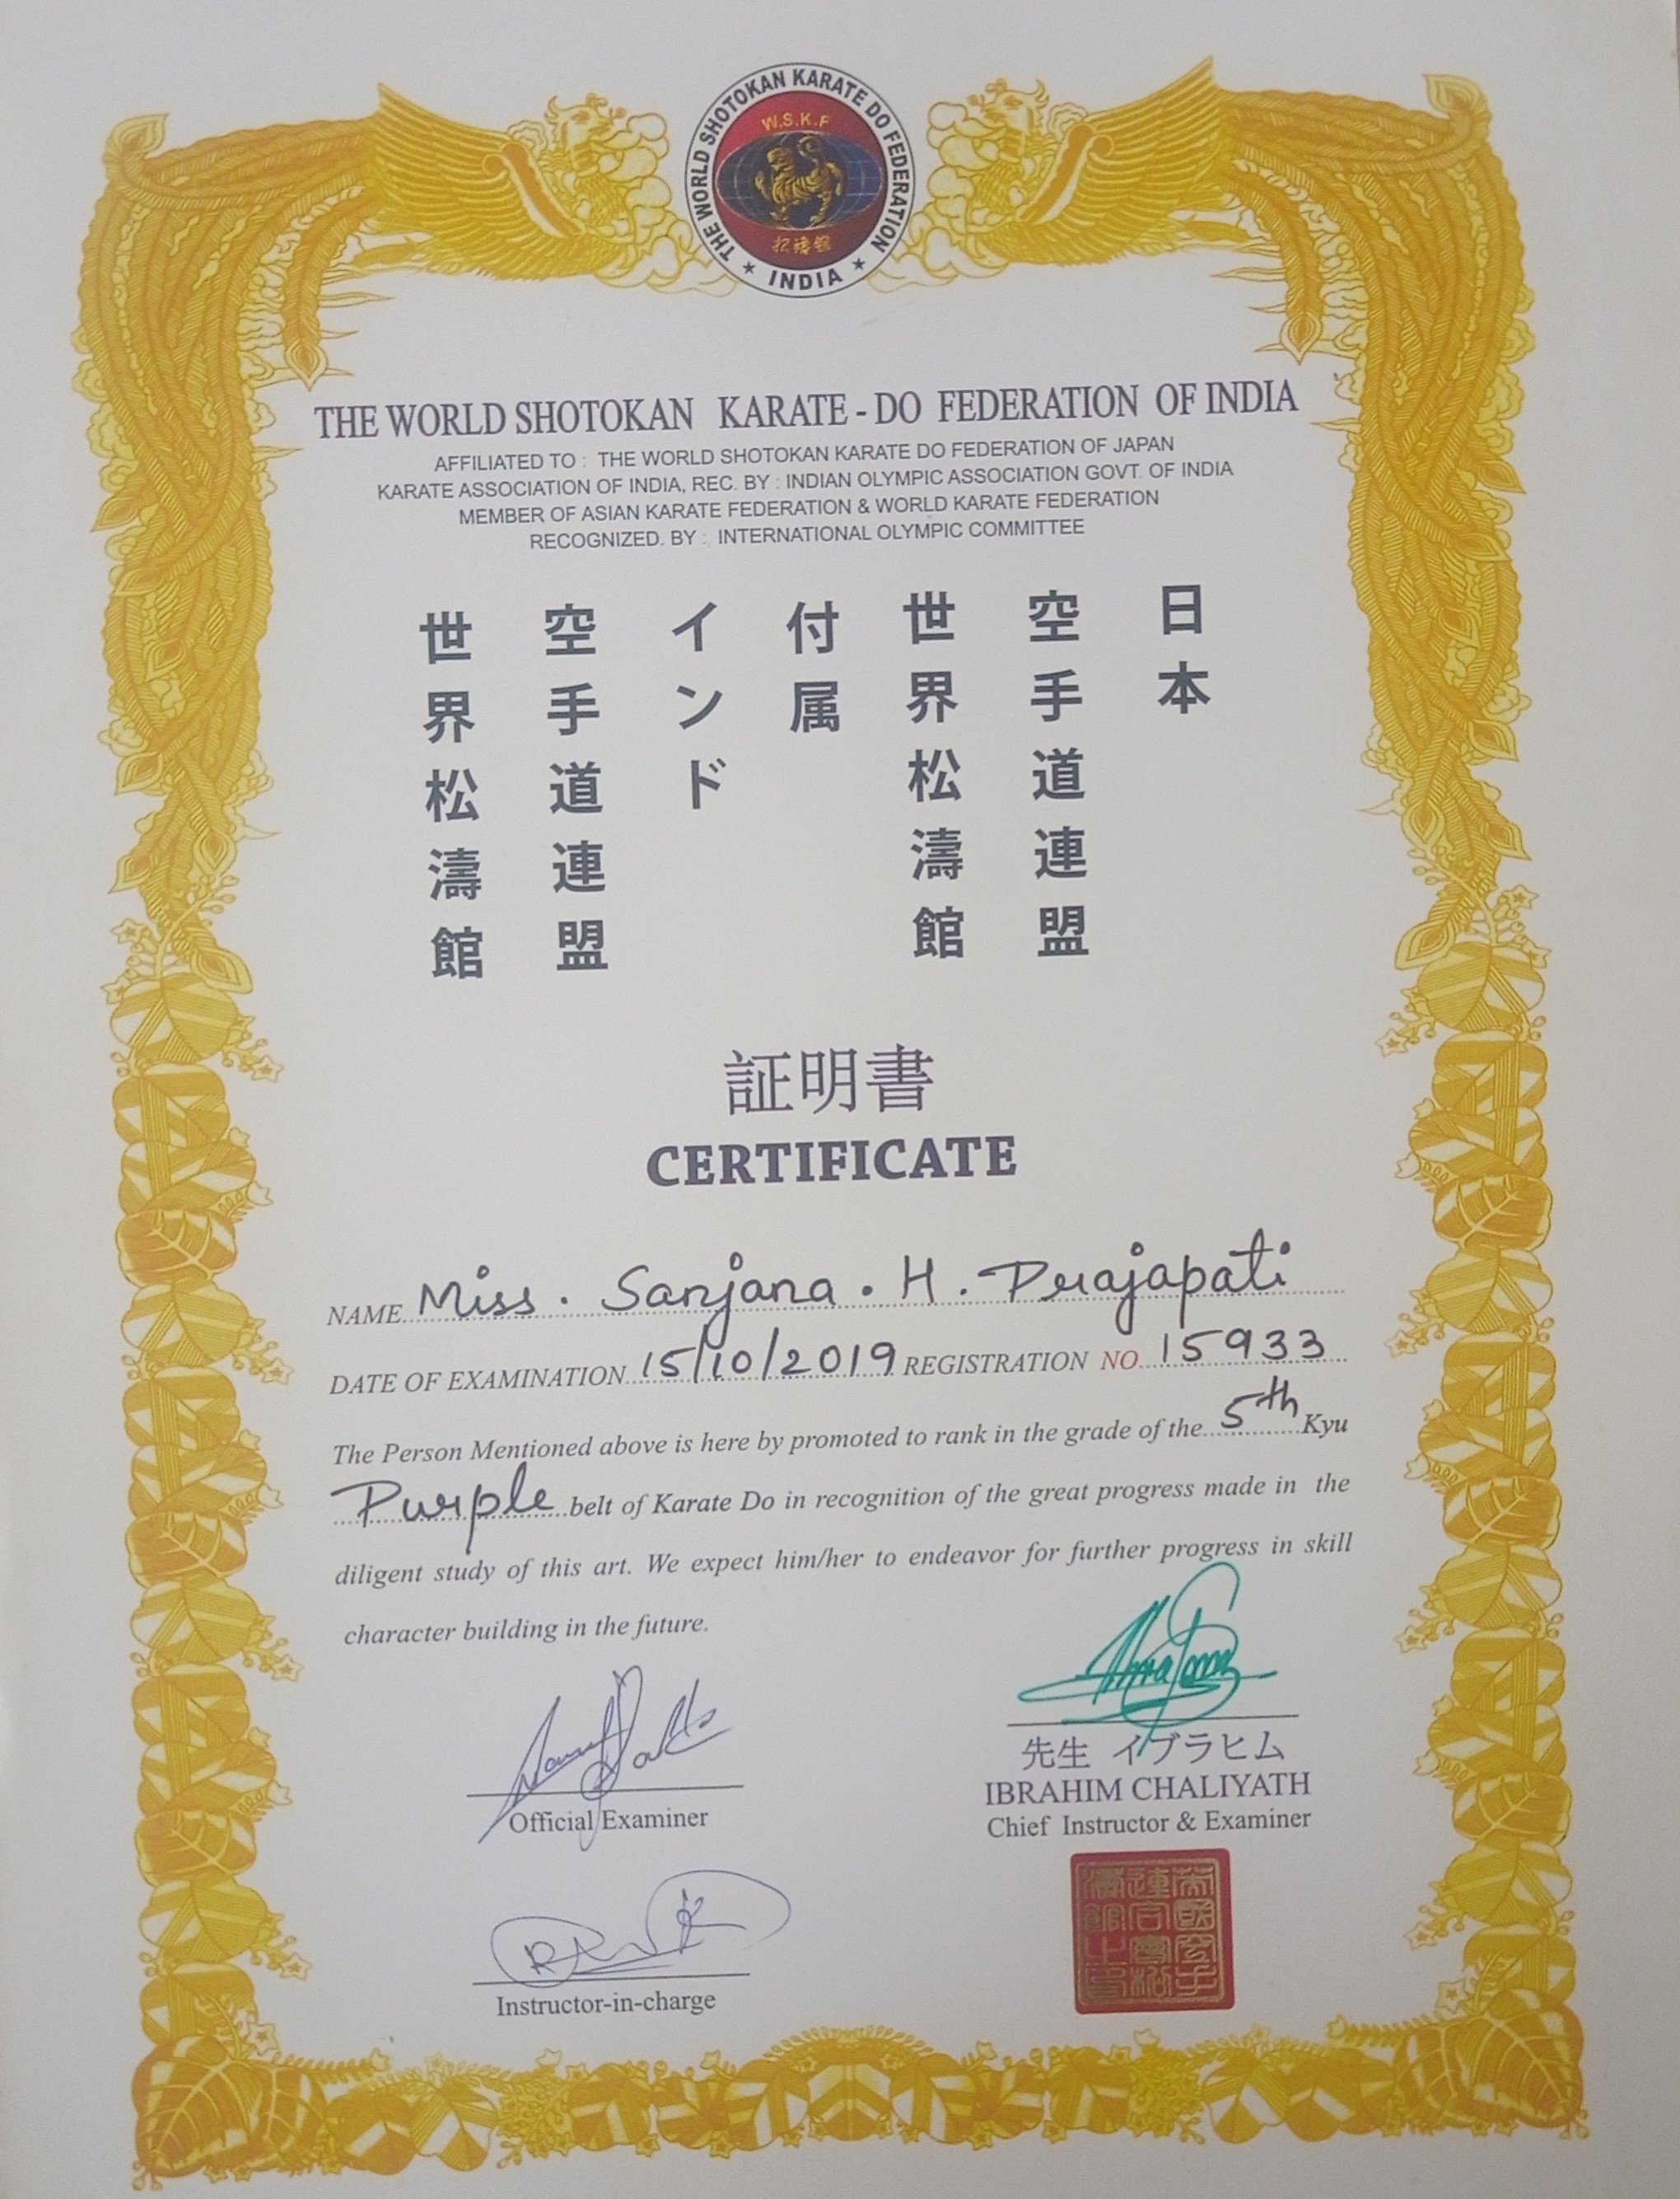 THE WORLD SHOTOKAN KARATE DO FEDERATION
★ INDIA ★
W.S.K.F
THE WORLD SHOTOKAN KARATE - DO FEDERATION OF INDIA
AFFILIATED TO : THE WORLD SHOTOKAN KARATE DO FEDERATION OF JAPAN
KARATE ASSOCIATION OF INDIA, REC. BY : INDIAN OLYMPIC ASSOCIATION GOVT. OF INDIA
MEMBER OF ASIAN KARATE FEDERATION & WORLD KARATE FEDERATION
RECOGNIZED. BY : INTERNATIONAL OLYMPIC COMMITTEE
日本
空手道連盟
世界松濤館
付属
インド
空手道連盟
世界松濤館
証明書
CERTIFICATE
NAME Miss. Sanjana. H. Prajapati
DATE OF EXAMINATION 15/10/2019 REGISTRATION NO. 15933
The Person Mentioned above is here by promoted to rank in the grade of the 5th Kyu
Purple belt of Karate Do in recognition of the great progress made in the
diligent study of this art. We expect him/her to endeavor for further progress in skill
character building in the future.
Official Examiner
先生 イブラヒム
IBRAHIM CHALIYATH
Chief Instructor & Examiner
Instructor-in-charge